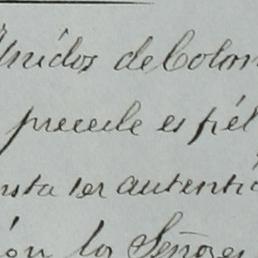 Unidos de Colom
precede es fiél
nsta ser autenti
ón los Señores